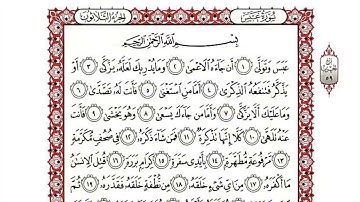 سُورَةُ عَبَسَ
الجُزْءُ الثَّلَاثُونَ
بِسْمِ اللَّهِ الرَّحْمَٰنِ الرَّحِيمِ
عَبَسَ وَتَوَلَّىٰ ١ أَن جَاءَهُ الْأَعْمَىٰ ٢ وَمَا يُدْرِيكَ لَعَلَّهُ يَزَّكَّىٰ ٣ أَوْ
يَذَّكَّرُ فَتَنفَعَهُ الذِّكْرَىٰ ٤ أَمَّا مَنِ اسْتَغْنَىٰ ٥ فَأَنتَ لَهُ تَصَدَّىٰ ٦
وَمَا عَلَيْكَ أَلَّا يَزَّكَّىٰ ٧ وَأَمَّا مَن جَاءَكَ يَسْعَىٰ ٨ وَهُوَ يَخْشَىٰ ٩ فَأَنتَ
عَنْهُ تَلَهَّىٰ ١٠ كَلَّا إِنَّهَا تَذْكِرَةٌ ١١ فَمَن شَاءَ ذَكَرَهُ ١٢ فِي صُحُفٍ مُّكَرَّمَةٍ
١٣ مَّرْفُوعَةٍ مُّطَهَّرَةٍ ١٤ بِأَيْدِي سَفَرَةٍ ١٥ كِرَامٍ بَرَرَةٍ ١٦ قُتِلَ الْإِنسَانُ
مَا أَكْفَرَهُ ١٧ مِنْ أَيِّ شَيْءٍ خَلَقَهُ ١٨ مِن نُّطْفَةٍ خَلَقَهُ فَقَدَّرَهُ ١٩ ثُمَّ